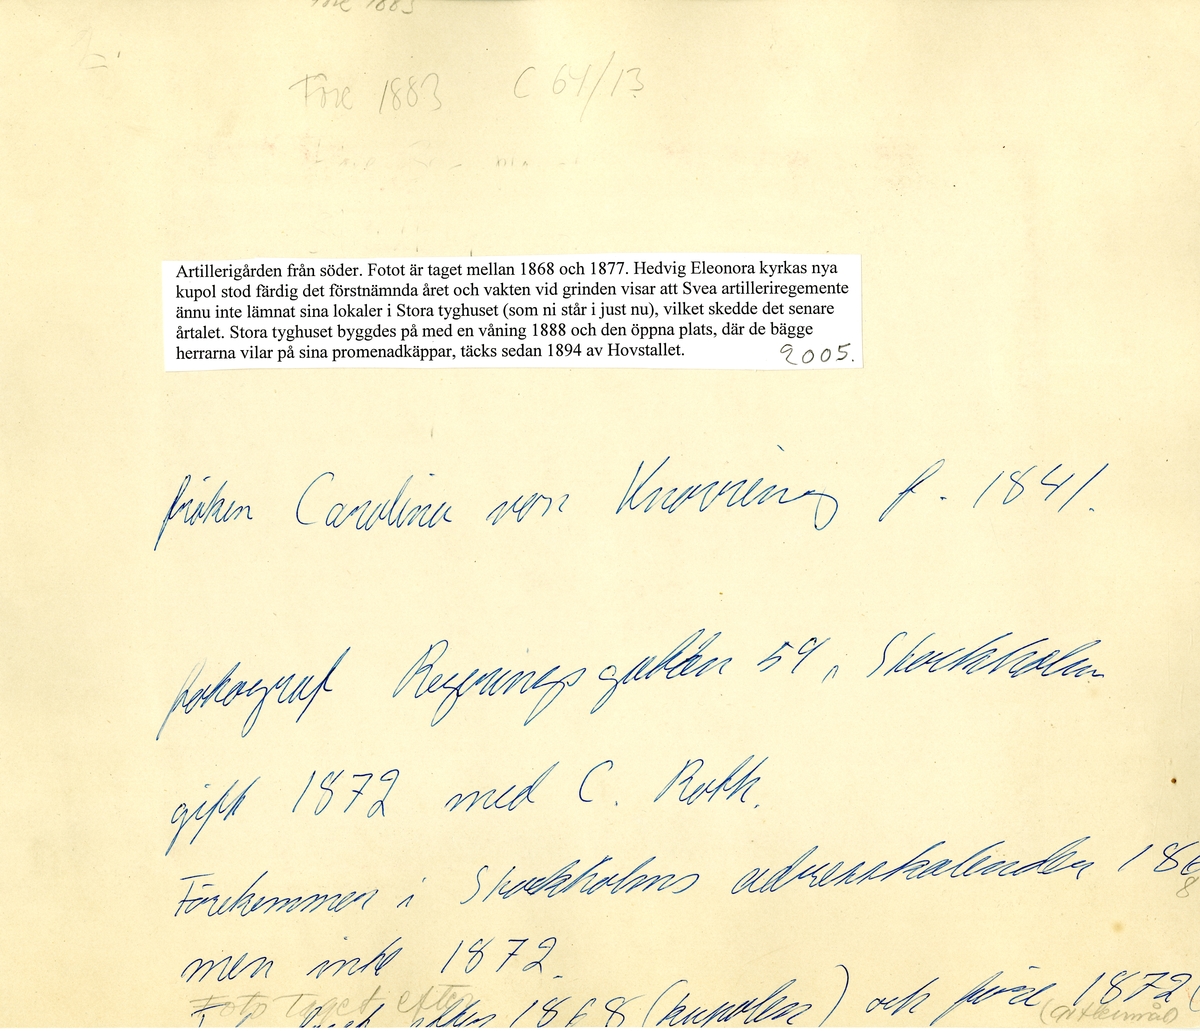 Före 1883
Före 1883 C 64/13
Artillerigården från söder. Fotot är taget mellan 1868 och 1877. Hedvig Eleonora kyrkas nya
kupol stod färdig det förstnämnda året och vakten vid grinden visar att Svea artilleriregemente
ännu inte lämnat sina lokaler i Stora tyghuset (som ni står i just nu), vilket skedde det senare
årtalet. Stora tyghuset byggdes på med en våning 1888 och den öppna plats, där de bägge
herrarna vilar på sina promenadkäppar, täcks sedan 1894 av Hovstallet.
2005.
fröken Carolina von Knorring f. 1841.
fotograf Regeringsgatan 59, Stockholm
gift 1872 med C. Roth.
Förekommer i Stockholms adresskalender 186
8
men inte 1872.
Foto Taget efter
1868 (kupolen) och före 1872